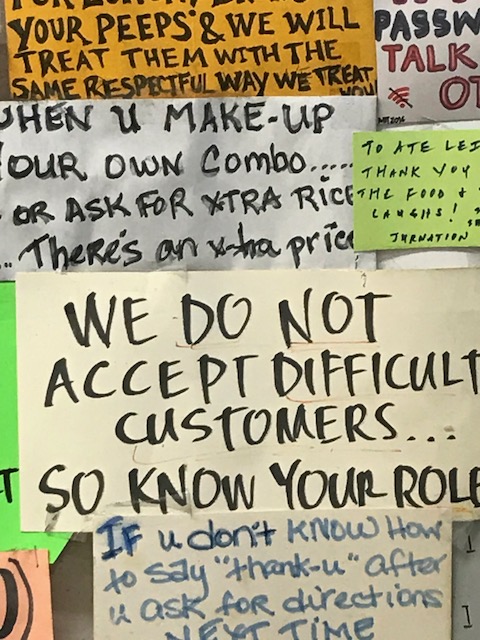 YOUR PEEPS & WE WILL
TREAT THEM WITH THE
SAME RESPECTFUL WAY WE TREAT
YOU
PASSW
TALK
OT
MTT 2016
WHEN U MAKE-UP
YOUR OWN Combo.....
OR ASK FOR XTRA RICE
.. There's an x-tra price
TO ATE LEI
THANK YOU
THE FOOD &
LAUGHS!
JURNATION
WE DO NOT
ACCEPT DIFFICULT
CUSTOMERS...
SO KNOW YOUR ROLE
IF u don't KNOW HOW
to say "thank-u" after
u ask for directions
NEXT TIME